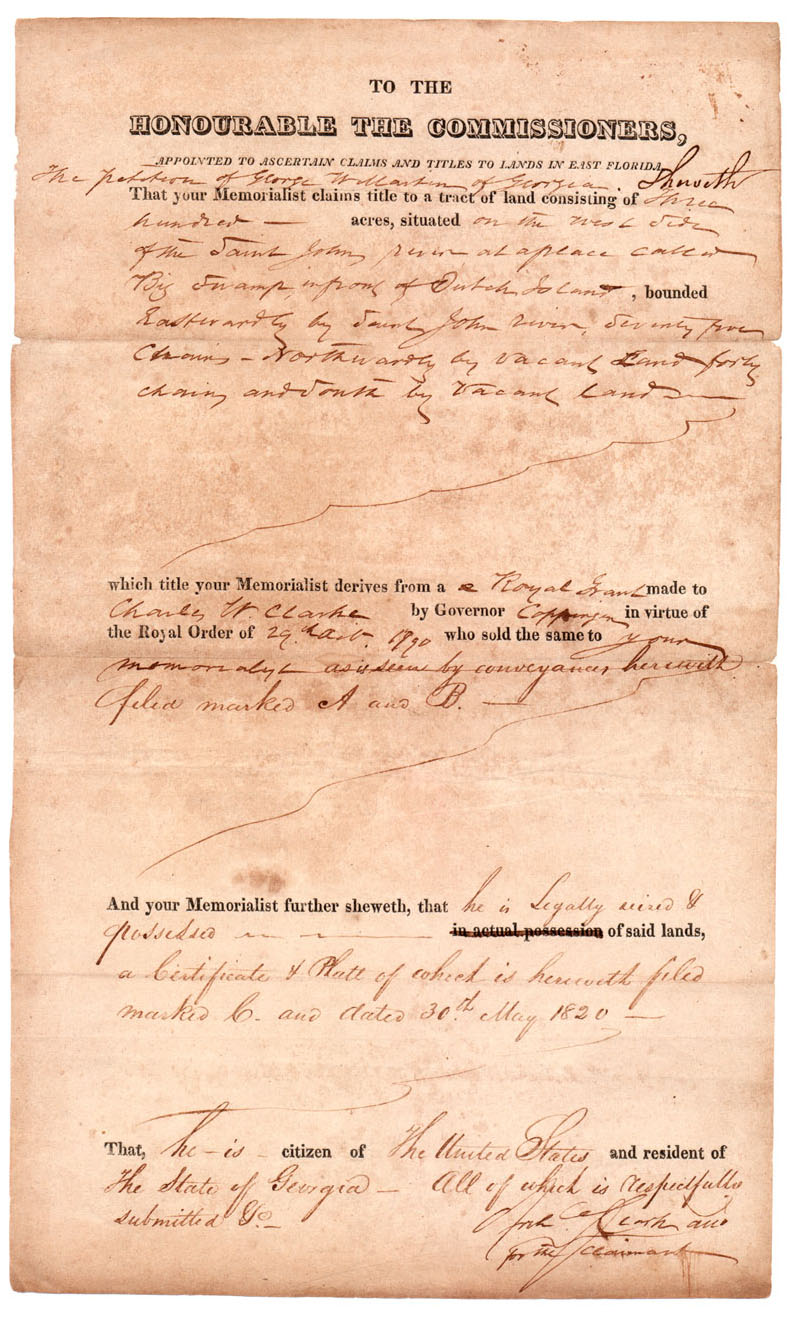 TO THE
HONOURABLE THE COMMISSIONERS,
APPOINTED TO ASCERTAIN CLAIMS AND TITLES TO LANDS IN EAST FLORIDA
The petition of George of Georgia. Sheweth
That your Memorialist claims title to a tract of land consisting of Three
hundred — acres, situated on the west side
of the Saint Johns river at a place called
Big Swamp, in front of Dutch Island, bounded
Eastwardly by Saint John river, Seventy five
Chains – Northwardly by vacant Land forty
chains and South by Vacant Land —
which title your Memorialist derives from a a Royal Grant made to
Charles W. Clarke by Governor Coppinger in virtue of
the Royal Order of 29th 1790 who sold the same to your
memorialist as is seen by conveyances herewith
filed marked A and B. —
And your Memorialist further sheweth, that he is Legally seized &
possessed — in actual possession of said lands,
a Certificate & Platt of which is herewith filed
marked C. and dated 30th. May 1820 —
That, he – is – citizen of The United States and resident of
The State of Georgia — All of which is respectfully
submitted &c –
for the Claimant